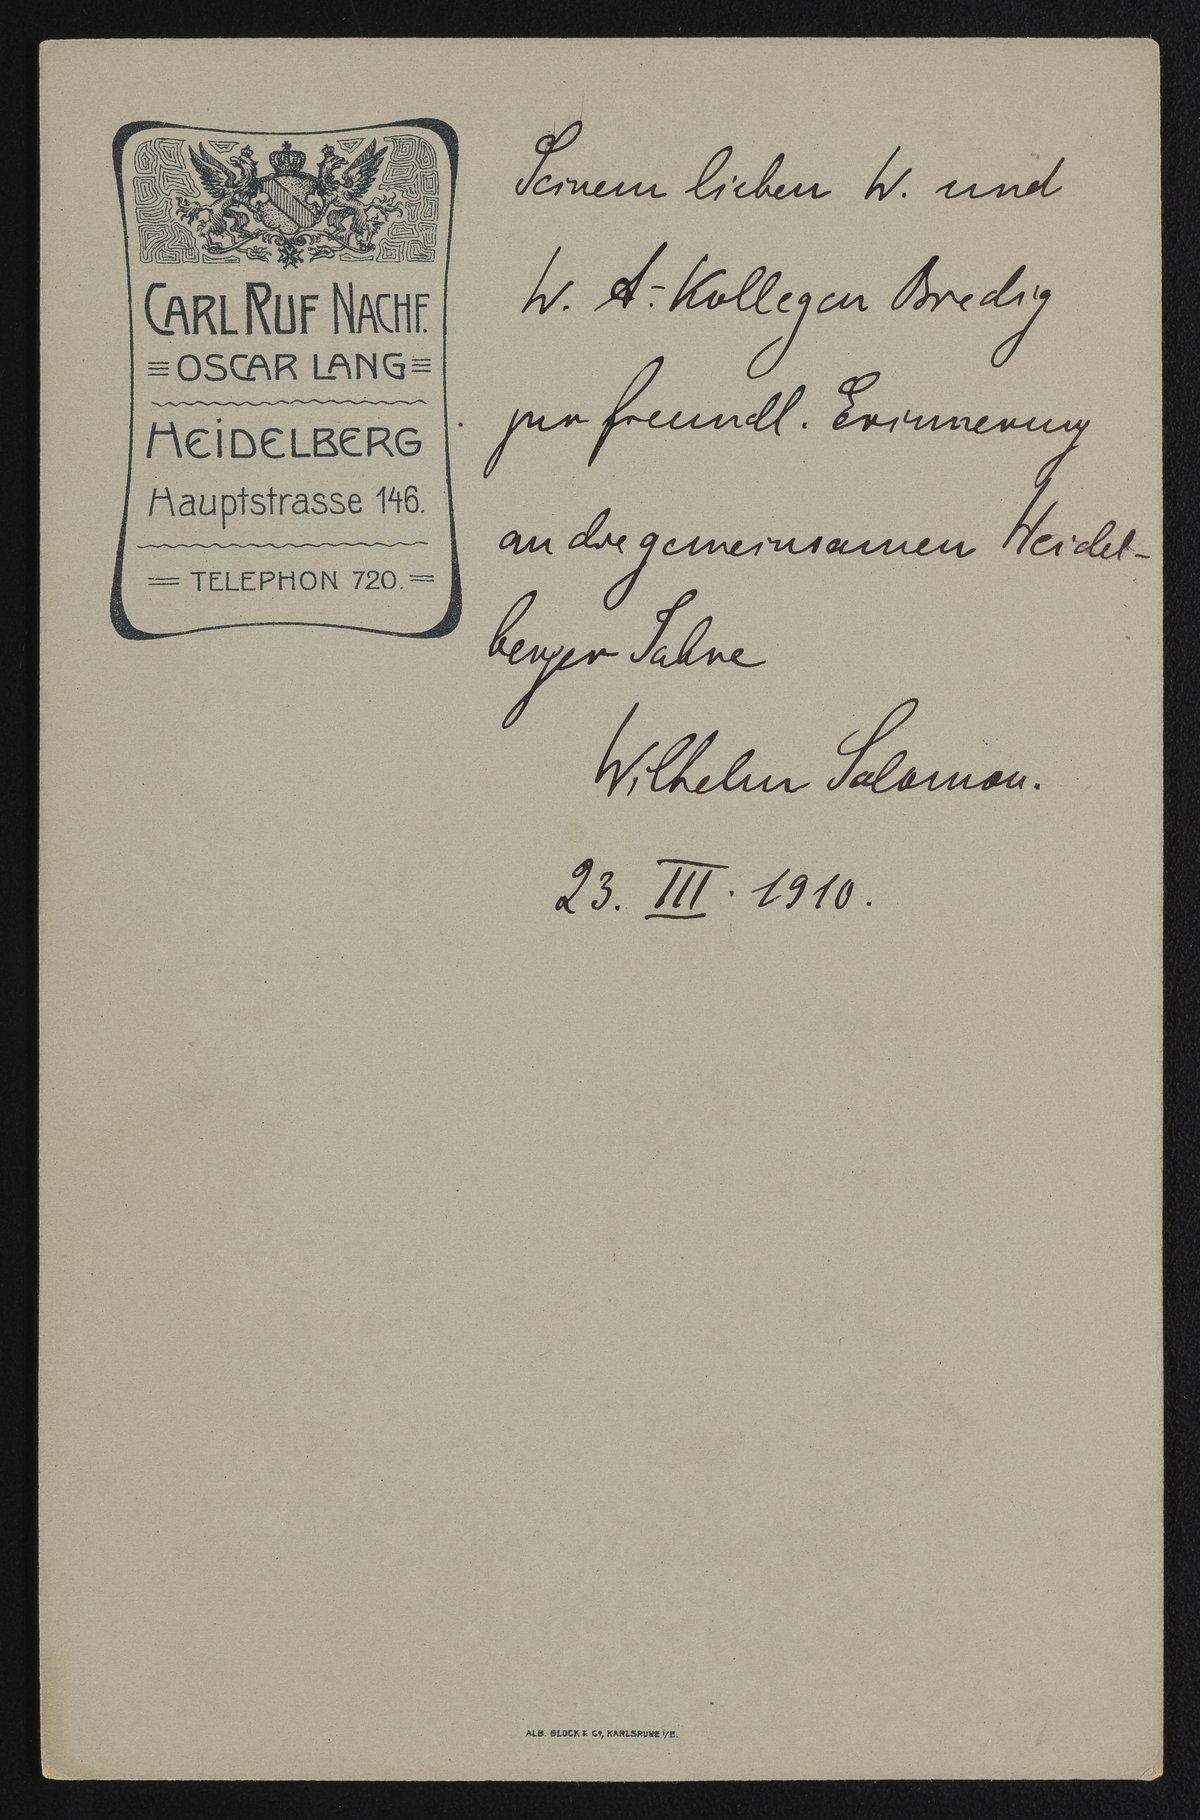 CARL RUF NACHF.
OSCAR LANG
HEIDELBERG
Hauptstrasse 146.
TELEPHON 720.
Seinem lieben W. und
W. A.-Kollegen Bredig
zur freundl. Erinnerung
an die gemeinsamen Heidel-
berger Jahre
Wilhelm Salomon.
23. III. 1910.
ALB. GLOCK & Co, KARLSRUHE i/B.